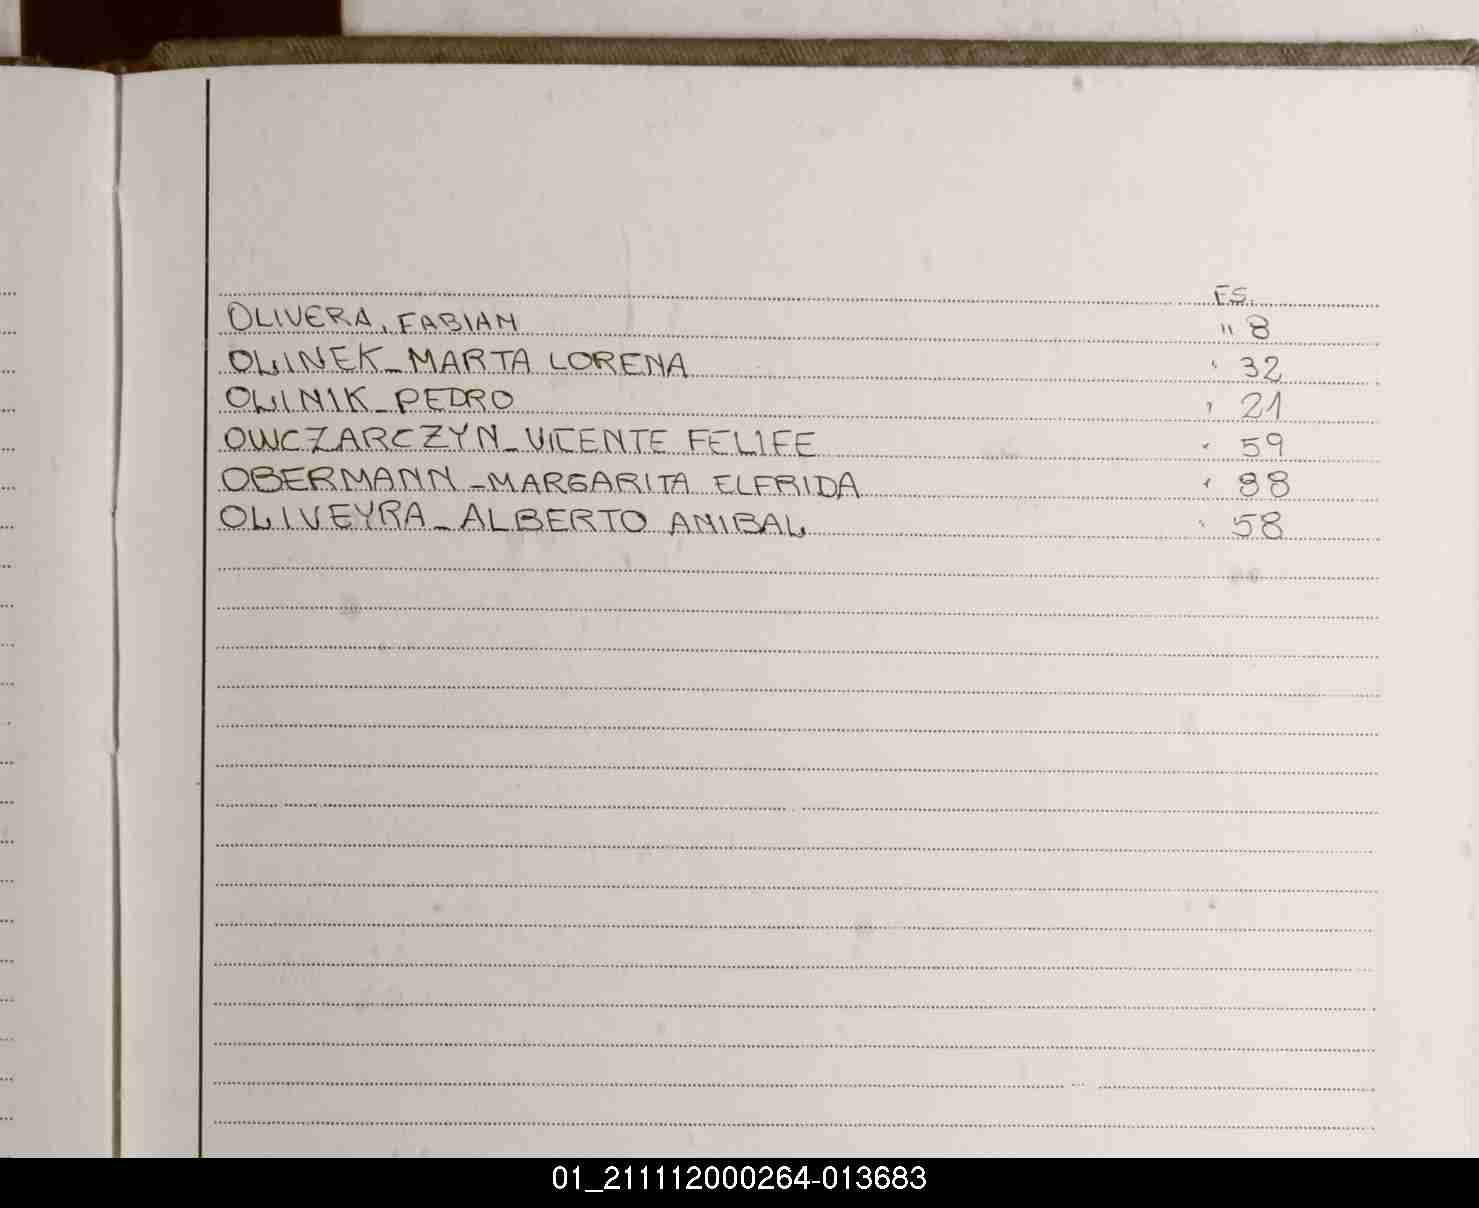 FS.
OLIVERA, FABIAN " 8
OLINEK_MARTA LORENA " 32
OLINIK_PEDRO " 21
OWCZARCZYN_VICENTE FELIPE " 59
OBERMANN_MARGARITA ELFRIDA " 88
OLIVEYRA_ALBERTO ANIBAL " 58
01_211112000264-013683